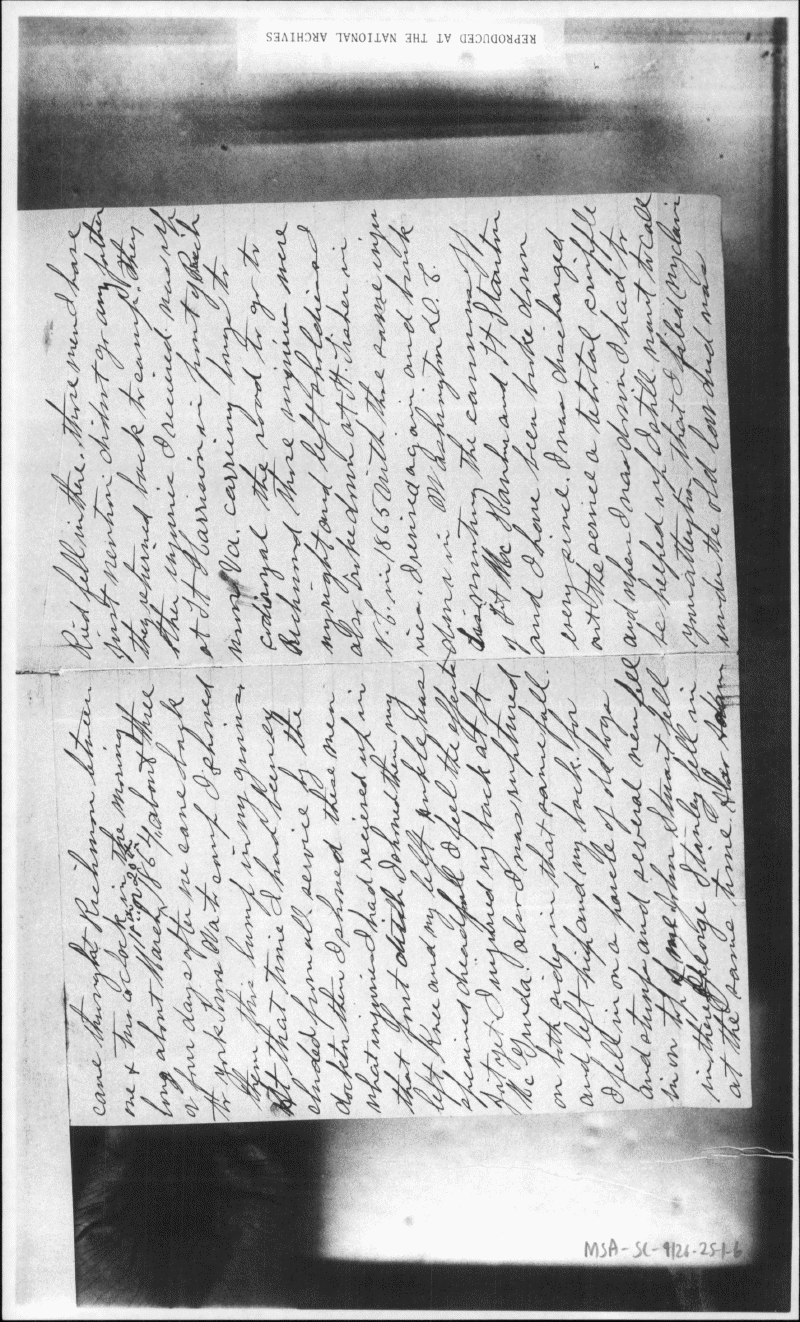 REPRODUCED AT THE NATIONAL ARCHIVES
came thurght Richmon between
one & two oclock in the morning
long about March 1864 about three
or four days after we came back
to york town Va to camp I showed
them this lump in my groines
At that time I had been ex
cluded from all service by the
docktor then I showed these men
what injuries I had recieved up in
that fort ditch I showed them my
left knee and my left ankle was
sprained dreadfull I feel the effects
yet I injured my back at ft
Mc Grudal also I was ruptured
on both sides in that same fall
and left hip and my back for
I fell in on a parcele of old logs
and stumps and several men fell
in on top of me John Stuart fell
in there George Stanley fell in
at the same time
Ried fell in there, those mend have
just mention didnt go any father
they returned back to camp. the
other injurie I recieved was up
at ft Harrison in front of Rich
mond Va. carrying logs to
codiryal the road to go to
Richmond those injuries were
my right and left sholdier and
also broke down at ft. Fisher in
N. C. in 1865 with the same inju
ries. I revived again and broke
down in Washington D. C.
dismounting the cannons off
of Ft Mc Hanhn and Ft Stanton
and I have been broke down
every since. I was discharged
out the service a tetotal criffle
and when I was down I had to
be helped up I still want to call
your attention that I filed my claim
under the old law and was
MSA-SC-4126-25-1-6